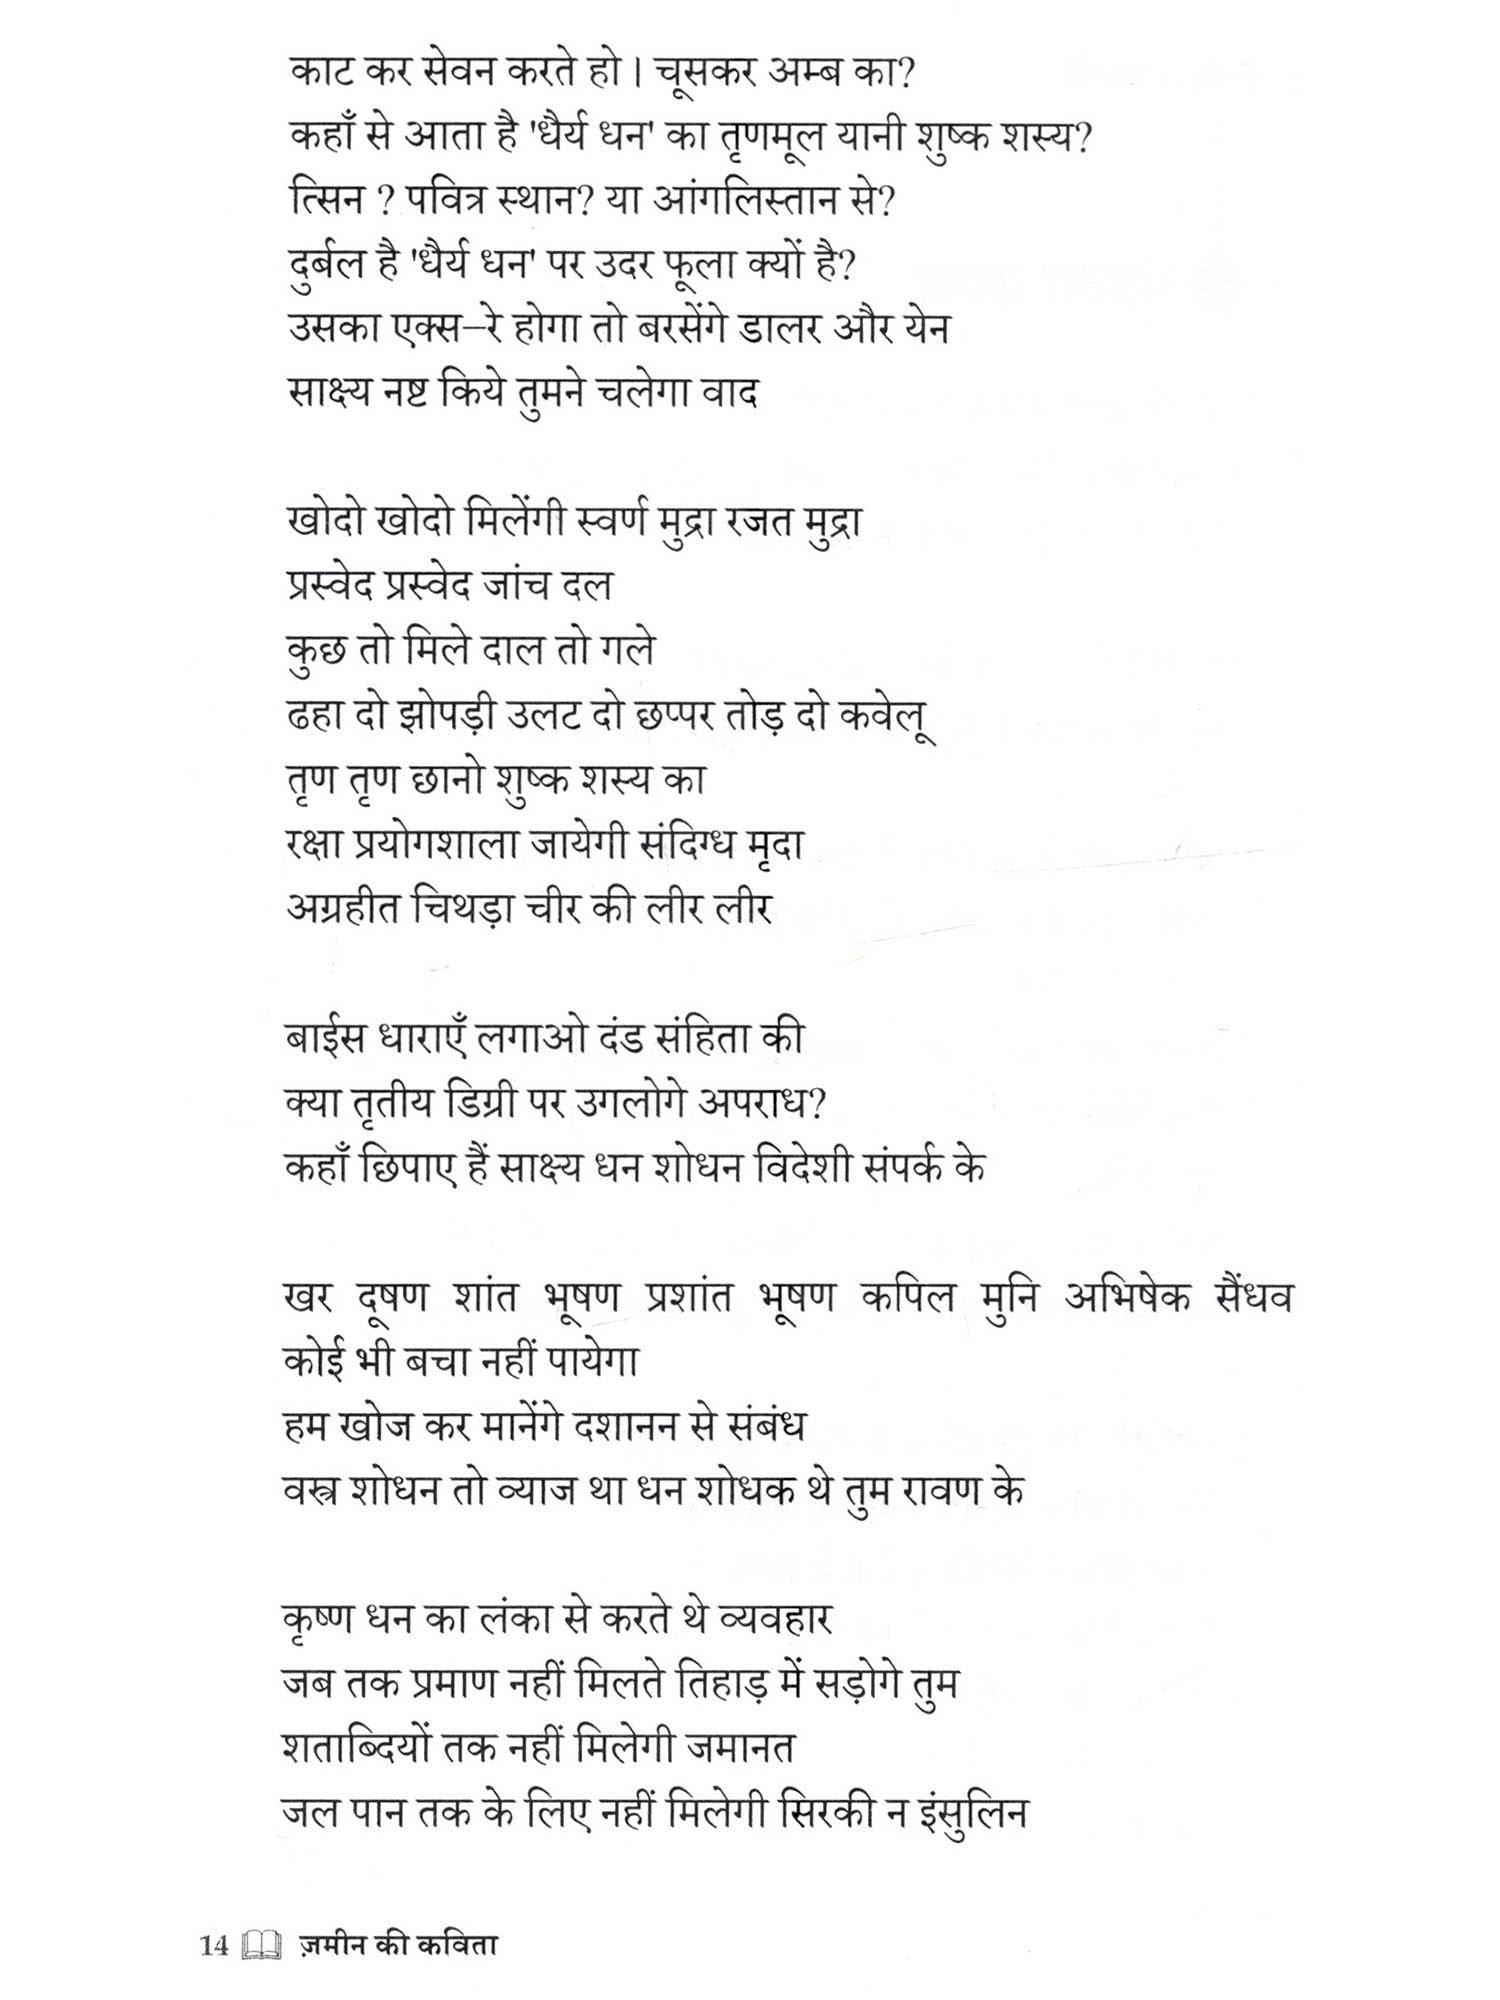 काट कर सेवन करते हो। चूसकर अम्ब का?
कहाँ से आता है 'धैर्य धन' का तृणमूल यानी शुष्क शस्य?
त्सिन ? पवित्र स्थान? या आंगलिस्तान से?
दुर्बल है 'धैर्य धन' पर उदर फूला क्यों है?
उसका एक्स–रे होगा तो बरसेंगे डालर और येन
साक्ष्य नष्ट किये तुमने चलेगा वाद
खोदो खोदो मिलेंगी स्वर्ण मुद्रा रजत मुद्रा
प्रस्वेद प्रस्वेद जांच दल
कुछ तो मिले दाल तो गले
ढहा दो झोपड़ी उलट दो छप्पर तोड़ दो कवेलू
तृण तृण छानो शुष्क शस्य का
रक्षा प्रयोगशाला जायेगी संदिग्ध मृदा
अग्रहीत चिथड़ा चीर की लीर लीर
बाईस धाराएँ लगाओ दंड संहिता की
क्या तृतीय डिग्री पर उगलोगे अपराध?
कहाँ छिपाए हैं साक्ष्य धन शोधन विदेशी संपर्क के
खर दूषण शांत भूषण प्रशांत भूषण कपिल मुनि अभिषेक सैंधव
कोई भी बचा नहीं पायेगा
हम खोज कर मानेंगे दशानन से संबंध
वस्त्र शोधन तो व्याज था धन शोधक थे तुम रावण के
कृष्ण धन का लंका से करते थे व्यवहार
जब तक प्रमाण नहीं मिलते तिहाड़ में सड़ोगे तुम
शताब्दियों तक नहीं मिलेगी जमानत
जल पान तक के लिए नहीं मिलेगी सिरकी न इंसुलिन
14 ज़मीन की कविता